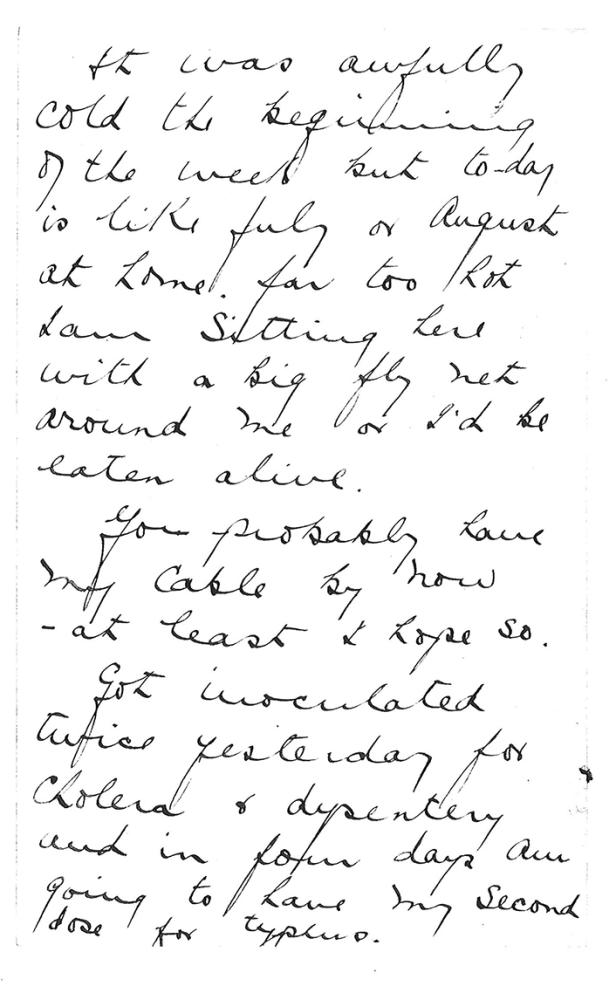 It was awfully
cold the beginning
of the week but to-day
is like July or August
at home. far too hot
I am Sitting here
with a big fly net
around me or I'd be
eaten alive.
You probably have
my Cable by now
- at least I hope so.
Got inoculated
twice yesterday for
Cholera & dysentery
and in four days am
going to have my Second
dose for typhus.